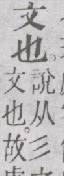 文也。
說从彡
文也故